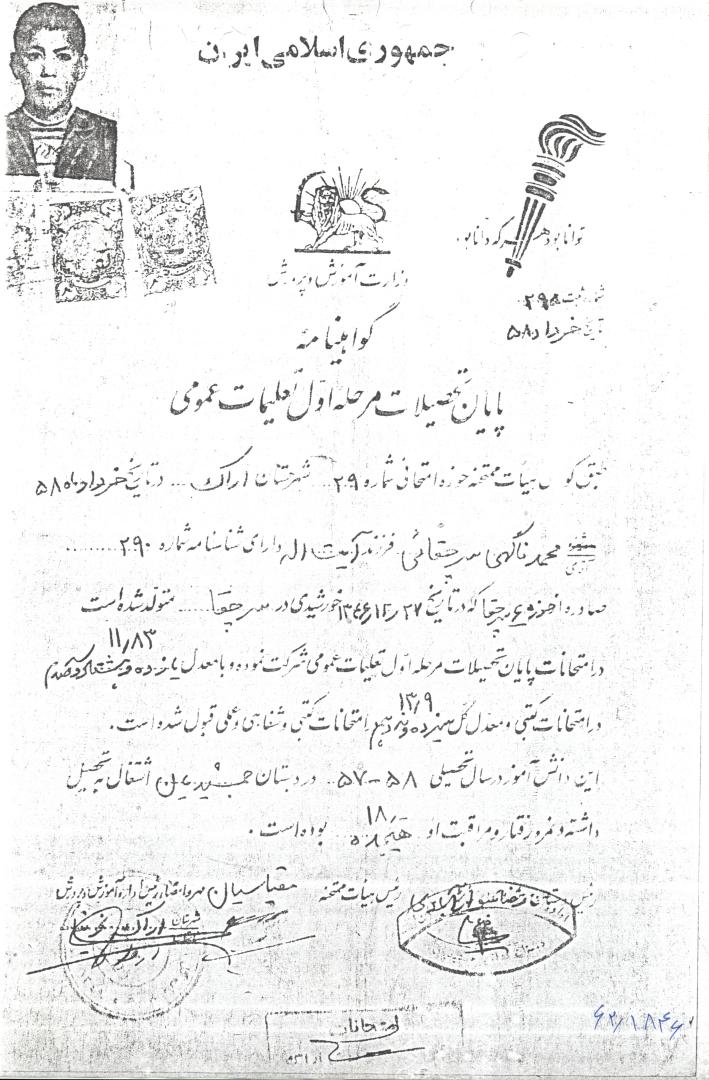 جمهوری اسلامی ایران
توانا بود هر که دانا بود
وزارت آموزش و پرورش
شماره ثبت ۲۹۵
تاریخ خرداد ۵۸
گواهینامه
پایان تحصیلات مرحله اول تعلیمات عمومی
طبق گواهی هیأت ممتحنه حوزه امتحانی شماره ۲۹ شهرستان اراک ... در تاریخ خرداد ماه ۵۸
محمد ناگهی سرحقائی فرزند آیت اله دارای شناسنامه شماره ۲۹۰ ..........
صادره از حوزه که در تاریخ ۲۷ر۱۲ر۱۳۴۶ خورشیدی در ...... متولد شده است
۱۱٫۸۳
در امتحانات پایان تحصیلات مرحله اول تعلیمات عمومی شرکت نموده و با معدل یازده و هشتاد و سه صدم
۱۳٫۹
در امتحانات کتبی و معدل کل سیزده و نه دهم امتحانات کتبی و شفاهی و عملی قبول شده است.
این دانش آموز در سال تحصیلی ۵۸-۵۷ .. در دبستان اشتغال به تحصیل
۱۸
داشته و نمره رفتار و مراقبت او .. هیجده ... بوده است.
رئیس دبستان
رئیس هیأت ممتحنه مقیاسیان
مهر و امضاء رئیس اداره آموزش و پرورش
شهرستان اراک
امتحانات
اراک
۶۲٫۱۸۴۶